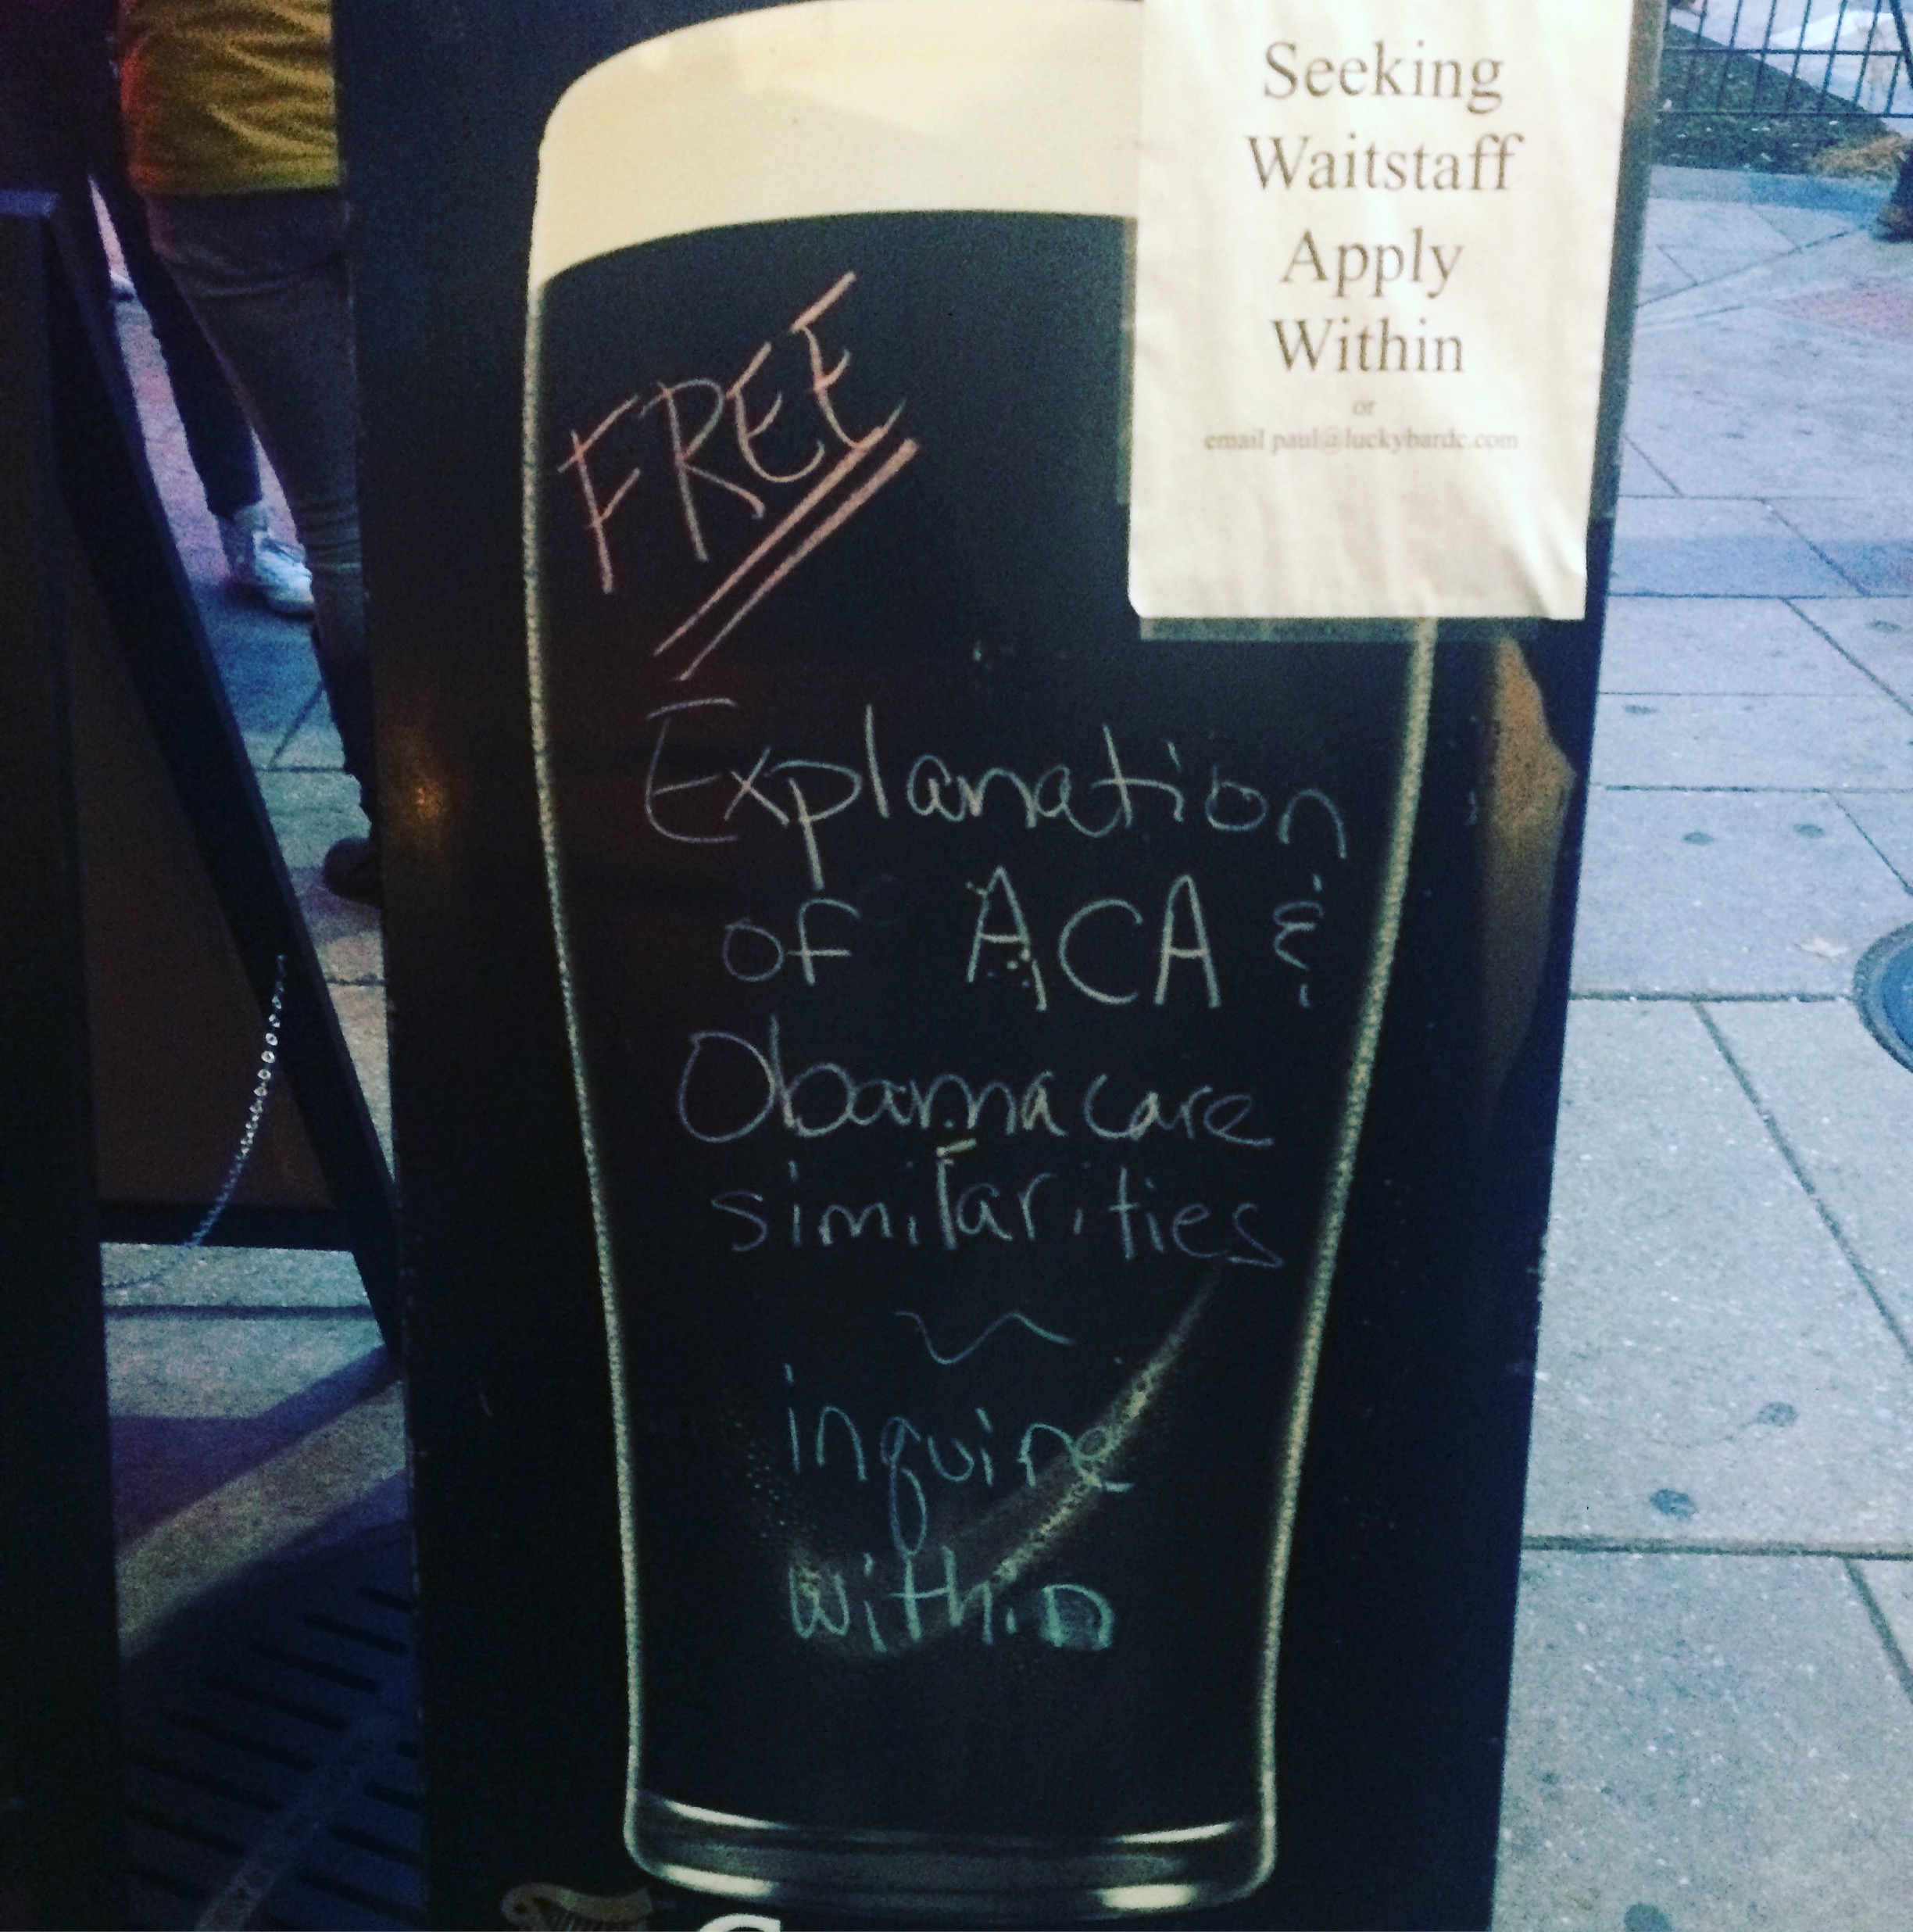 Seeking
Waitstaff
Apply
Within
or
email paul@luckybardc.com
FREE
Explanation
of ACA &
Obamacare
similarities
~
inquire
within
G